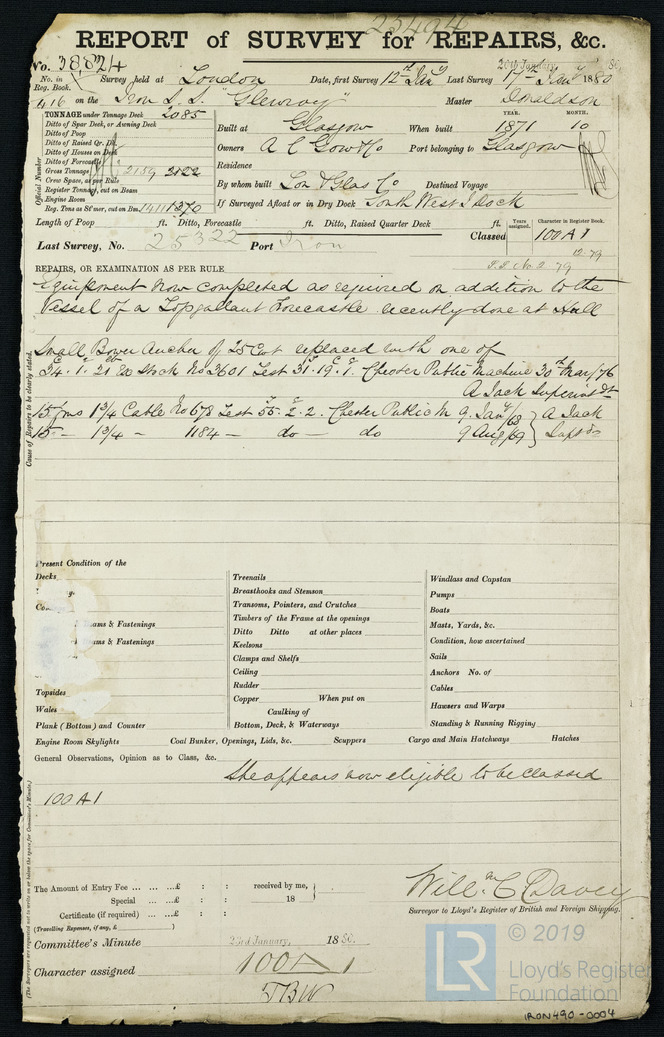 25494
REPORT of SURVEY for REPAIRS, &c.
No. 38,824
20th January 80.
No. in Reg. Book. Survey held at London Date, first Survey 12th Jany Last Survey 17th Jany 1880
416 on the Iron S.S. "Glenroy" Master Donaldson
TONNAGE under Tonnage Deck 2085
Ditto of Spar Deck, or Awning Deck
Ditto of Poop
Ditto of Raised Qr. Dk.
Ditto of Houses on Deck
Ditto of Forecastle
Gross Tonnage 2159 2122
Crew Space, as per Rule
Register Tonnage, cut on Beam
Engine Room
Reg. Tons as St'mer, cut on Bm. 1411 1370
Official Number
YEAR. MONTH.
Built at Glasgow When built 1871 10
Owners A C Gow & Co Port belonging to Glasgow
Residence
By whom built Lon & Glas Co Destined Voyage
If Surveyed Afloat or in Dry Dock South West I Dock
Length of Poop ft. Ditto, Forecastle ft. Ditto, Raised Quarter Deck ft.
Last Survey, No. 25322 Port Iron
Classed
Years assigned. Character in Register Book.
100 A 1
12.79
No. 2 79
REPAIRS, OR EXAMINATION AS PER RULE
Equipment now completed as required on addition to the
Vessel of a Topgallant Forecastle recently done at Hull
Small Bower Anchor of 25 Cwt replaced with one of
34.1.21 Ex Stock No 3601 Test 31.19.1. Chester Public Machine 30th May/76
A Jack Superintdt
15 fms 1 3/4 Cable No 678 Test 55.2.2. Chester Public M 9 Jany/68 A Jack
15 - 1 3/4 - 1184 - do - do 9 Aug/69 Suptdt
Cause of Repairs to be clearly stated.
Present Condition of the
Decks
Beams & Fastenings
Beams & Fastenings
Topsides
Wales
Plank (Bottom) and Counter
Treenails
Breasthooks and Stemson
Transoms, Pointers, and Crutches
Timbers of the Frame at the openings
Ditto Ditto at other places
Keelsons
Clamps and Shelfs
Ceiling
Rudder
Copper When put on
Caulking of
Bottom, Deck, & Waterways
Windlass and Capstan
Pumps
Boats
Masts, Yards, &c.
Condition, how ascertained
Sails
Anchors No. of
Cables
Hawsers and Warps
Standing & Running Rigging
Engine Room Skylights Coal Bunker, Openings, Lids, &c. Scuppers Cargo and Main Hatchways Hatches
General Observations, Opinion as to Class, &c.
She appears now eligible to be classed
100 A 1
The Amount of Entry Fee ... ... ...£ : : received by me,
Special ... ...£ : : 18
Certificate (if required) ... ...£ : :
(Travelling Expenses, if any, £ )
Willm C Davey
Surveyor to Lloyd's Register of British and Foreign Shipping.
Committee's Minute 23rd January, 1880.
Character assigned 100 A 1
TBW
(The Surveyors are requested not to write on or below the space for Committee's Minute.)
LR
© 2019
Lloyd's Register
Foundation
IRON490-0004